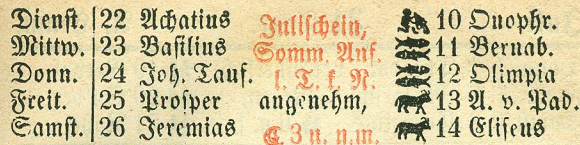 Dienst. 22 Achatius Julischein, 10 Onophr.
Mittw. 23 Basilius Somm. Anf. 11 Bernab.
Donn. 24 Joh. Tauf. l. T. k. N. 12 Olimpia
Freit. 25 Prosper angenehm, 13 A. v. Pad.
Samst. 26 Jeremias 3 u. n.m. 14 Eliseus